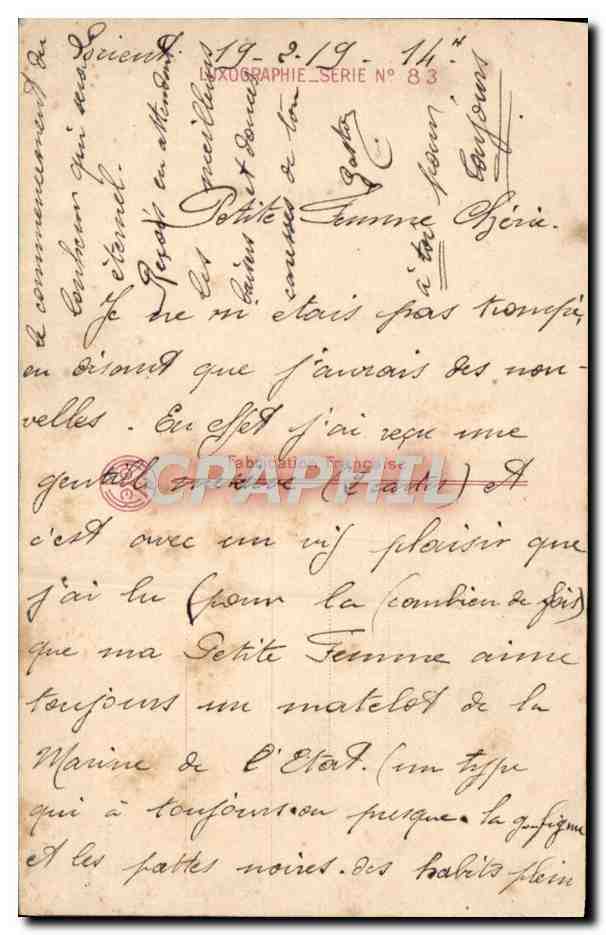 Lorient. 19-2-19- 14H
LUXOGRAPHIE_SERIE N° 83
Petite Femme Chérie.
Je ne m'étais pas trompé,
en disant que j'aurais des nou-
velles. En effet j'ai reçu une
Fabrication Française
gentille missive (2 cartes) et
CPARPHIL
c'est avec un vif plaisir que
j'ai lu (pour la (combien de fois)
que ma Petite Femme aime
toujours un matelot de la
Marine de l'Etat. (un type
qui à toujours. ou presque. la figure
et les pattes noires. des habits plein
le commencement du
bonheur qui sera
éternel.
Reçois en attendant
les meilleurs
baisers et douces
caresses de ton
Gaston
à toi pour
toujours